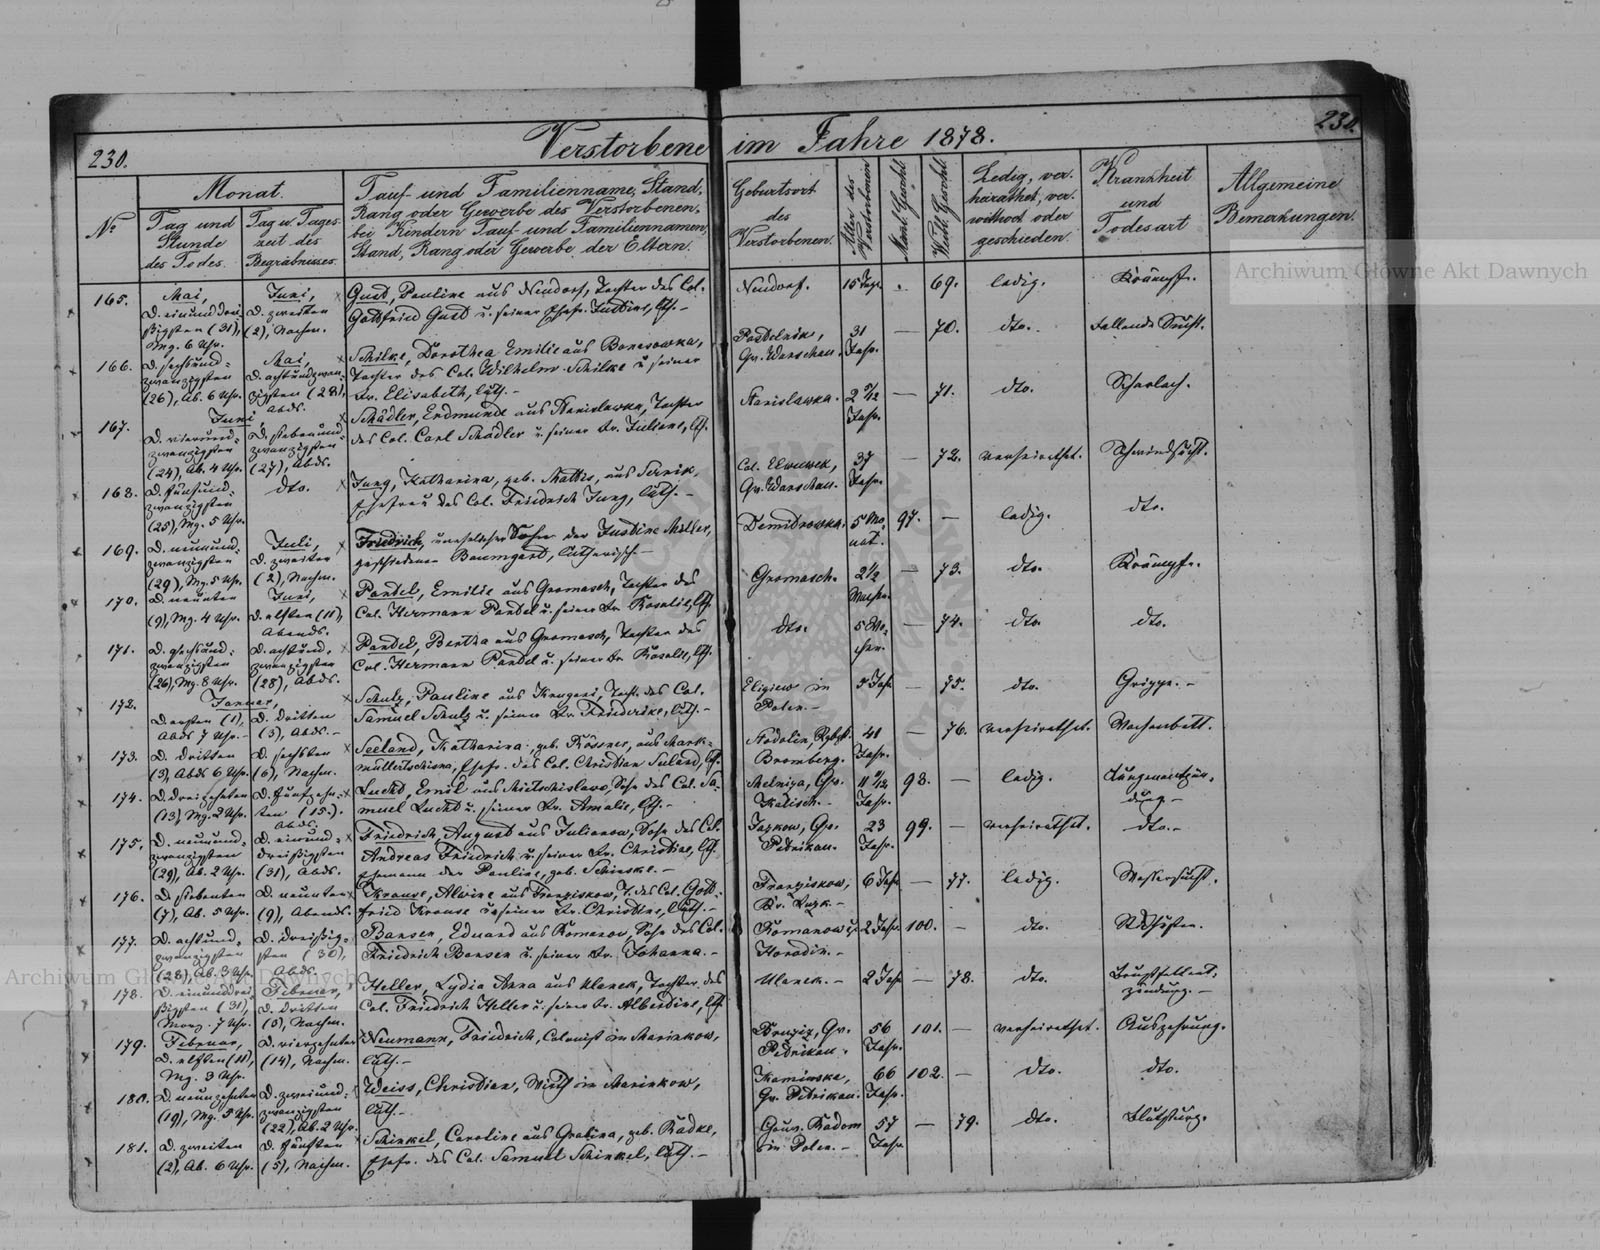 230.
Verstorbene im Jahre 1878.
230.
No
Monat.
Tag und Stunde des Todes.
Tag u. Tages-zeit des Begräbnisses.
Tauf- und Familienname, Stand,
Rang oder Gewerbe des Verstorbenen,
bei Kindern Tauf- und Familiennamen,
Stand, Rang oder Gewerbe der Eltern.
Geburtsort des Verstorbenen.
Alter des Verstorbenen
Männl. Geschl.
Weibl. Geschl.
Ledig, ver-
heirathet, ver-
wittwet oder
geschieden.
Krankheit
und
Todesart
Allgemeine
Bemerkungen.
165.
Mai,
D. einunddrei-
ßigsten (31),
Mrg. 6 Uhr.
Juni,
D. zweiten
(2), Nachm.
Gust, Pauline aus Neudorf, Tochter des Col.
Gottfried Gust u. seiner Ehefr. Justine, luth. –
Neudorf.
69.
ledig.
Krämpfe.
166.
D. sechsund-
zwanzigsten
(26), Ab. 6 Uhr.
Mai,
D. achtundzwan-
zigsten (28),
Abds.
Schilke, Dorothea Emilie aus Borezowka,
Tochter des Col. Wilhelm Schilke u. seiner
Fr. Elisabeth, luth. –
Gv. Warschau.
31 Jahr.
—
70.
dto.
Fallende Sucht.
167.
Juni
D. vierund-
zwanzigsten
(24), Ab. 4 Uhr.
D. siebenund-
zwanzigsten
(27), Abds.
Schädler, Erdmunde aus Stanislawka, Tochter
des Col. Carl Schädler u. seiner Fr. Juliane, lth.
Stanislawka.
Jahr.
—
71.
dto.
Scharlach.
168.
D. fünfund-
zwanzigsten
(25), Mg. 5 Uhr.
dto.
Jung, Katharina, geb. Mattis, aus Sernik,
Ehefrau des Col. Friedrich Jung, luth. –
Gv. Warschau.
37 Jahr.
—
72.
verheirathet.
Schwindsucht.
169.
D. neunund-
zwanzigsten
(29), Mg. 5 Uhr.
Juli,
D. zweiten
(2), Nachm.
Friedrich, unehelicher Sohn der Justine Müller,
geschiedenen Baumgart, lutherisch. –
Demidrowka.
5 Mo-
nat.
97.
—
ledig.
dto.
170.
D. neunten
(9), Mg. 4 Uhr.
Juni,
D. elften (11),
Abends.
Pandel, Emilie aus Gromasch, Tochter des
Col. Hermann Pandel u. seiner Fr. Rosalie, lth.
Gromasch.
2½ Wochen.
—
73.
dto.
Krämpfe.
171.
D. sechsund-
zwanzigsten
(26), Mg. 8 Uhr.
D. achtund-
zwanzigsten
(28), Abds.
Pandel, Bertha aus Gromasch, Tochter des
Col. Hermann Pandel u. seiner Fr. Rosalie, lth.
dto.
5 Wo-
chen.
—
74.
dto.
dto.
172.
Januar,
D. ersten (1),
Abds 7 Uhr. –
D. dritten
(3), Abds. –
Schulz, Pauline aus Tocht. des Col.
Samuel Schulz u. seiner Fr. Friederike, luth. –
in
Polen. –
Jahr
—
75.
dto.
Grippe. –
173.
D. dritten
(3), Abds 6 Uhr.
D. sechsten
(6), Nachm.
Seeland, Katharina, geb. Rössner, aus
Ehefr. des Col. Christian Seeland, lth.
Bromberg.
41 Jahr.
—
76.
verheirathet.
Wochenbett.
174.
D. dreizehnten
(13), Mg. 2 Uhr.
D. fünfzehn-
ten (15.)
Abds.
Luckt, Emil aus Mietschislaw, Sohn des Col. Sa-
muel Luckt u. seiner Fr. Amalie, lth. –
Gv.
Kalisch. –
Jahr.
98.
—
ledig.
Lungenentzün-
dung –
175.
D. neunund-
zwanzigsten
(29), Ab. 2 Uhr.
D. einund-
dreißigsten
(31), Abds.
Friedrich, August aus Julianow, Sohn des Col.
Andreas Friedrich u. seiner Fr. Christine, lth
Ehemann der Pauline, geb. Schinske. –
Gv.
Petrikau.
23 Jahr.
99.
—
verheirathet.
dto. –
176.
D. siebenten
(7), Ab. 5 Uhr.
D. neunten
(9), Abends.
Krause, Alwine aus Franziskow, T. des Col. Gott-
fried Krause u. seiner Fr. Christine, luth. –
Franziskow,
Kr. Luzk –
6 Jahr
—
77.
ledig.
Wassersucht.
177.
D. achtund-
zwanzigsten
(28), Ab. 3 Uhr.
D. dreißig-
sten (30),
Abds.
Bansen, Eduard aus Romanow, Sohn des Col.
Friedrich Bansen u. seiner Fr. Johanna. –
Romanow
2 Jahr
100.
—
dto.
178.
D. einunddrei-
ßigsten (31),
Morg. 7 Uhr.
Februar,
D. dritten
(5), Nachm.
Heller, Lydia Anna aus Ulanek, Tochter des
Col. Friedrich Heller u. seiner Fr. Albertine, lth
Ulanek. –
2 Jahr
—
78.
dto.
Brustfellent-
zündung. –
179.
Februar,
D. elften (11),
Mg. 3 Uhr.
D. vierzehnten
(14), Nachm.
Neumann, Friedrich, Colonist in Marinkow,
luth. –
Gv.
Petrikau.
56 Jahr.
101.
—
verheirathet.
Auszehrung.
180.
D. neunzehnten
(19), Mg. 5 Uhr.
D. zweiund-
zwanzigsten
(22), Ab. 2 Uhr.
Weiss, Christian, Wirth in Marinkow,
luth. –
Kaminska,
Gv. Petrikau.
66 Jahr.
102.
—
dto.
dto.
181.
D. zweiten
(2), Ab. 6 Uhr.
D. fünften
(5), Nachm.
Schinkel, Caroline aus Gralina, geb. Radke,
Ehefr. des Col. Samuel Schinkel, luth. –
Gouv. Radom
in Polen. –
57 Jahr.
—
79.
dto.
Blutsturz.
Archiwum Główne Akt Dawnych
Archiwum Główne Akt Dawnych